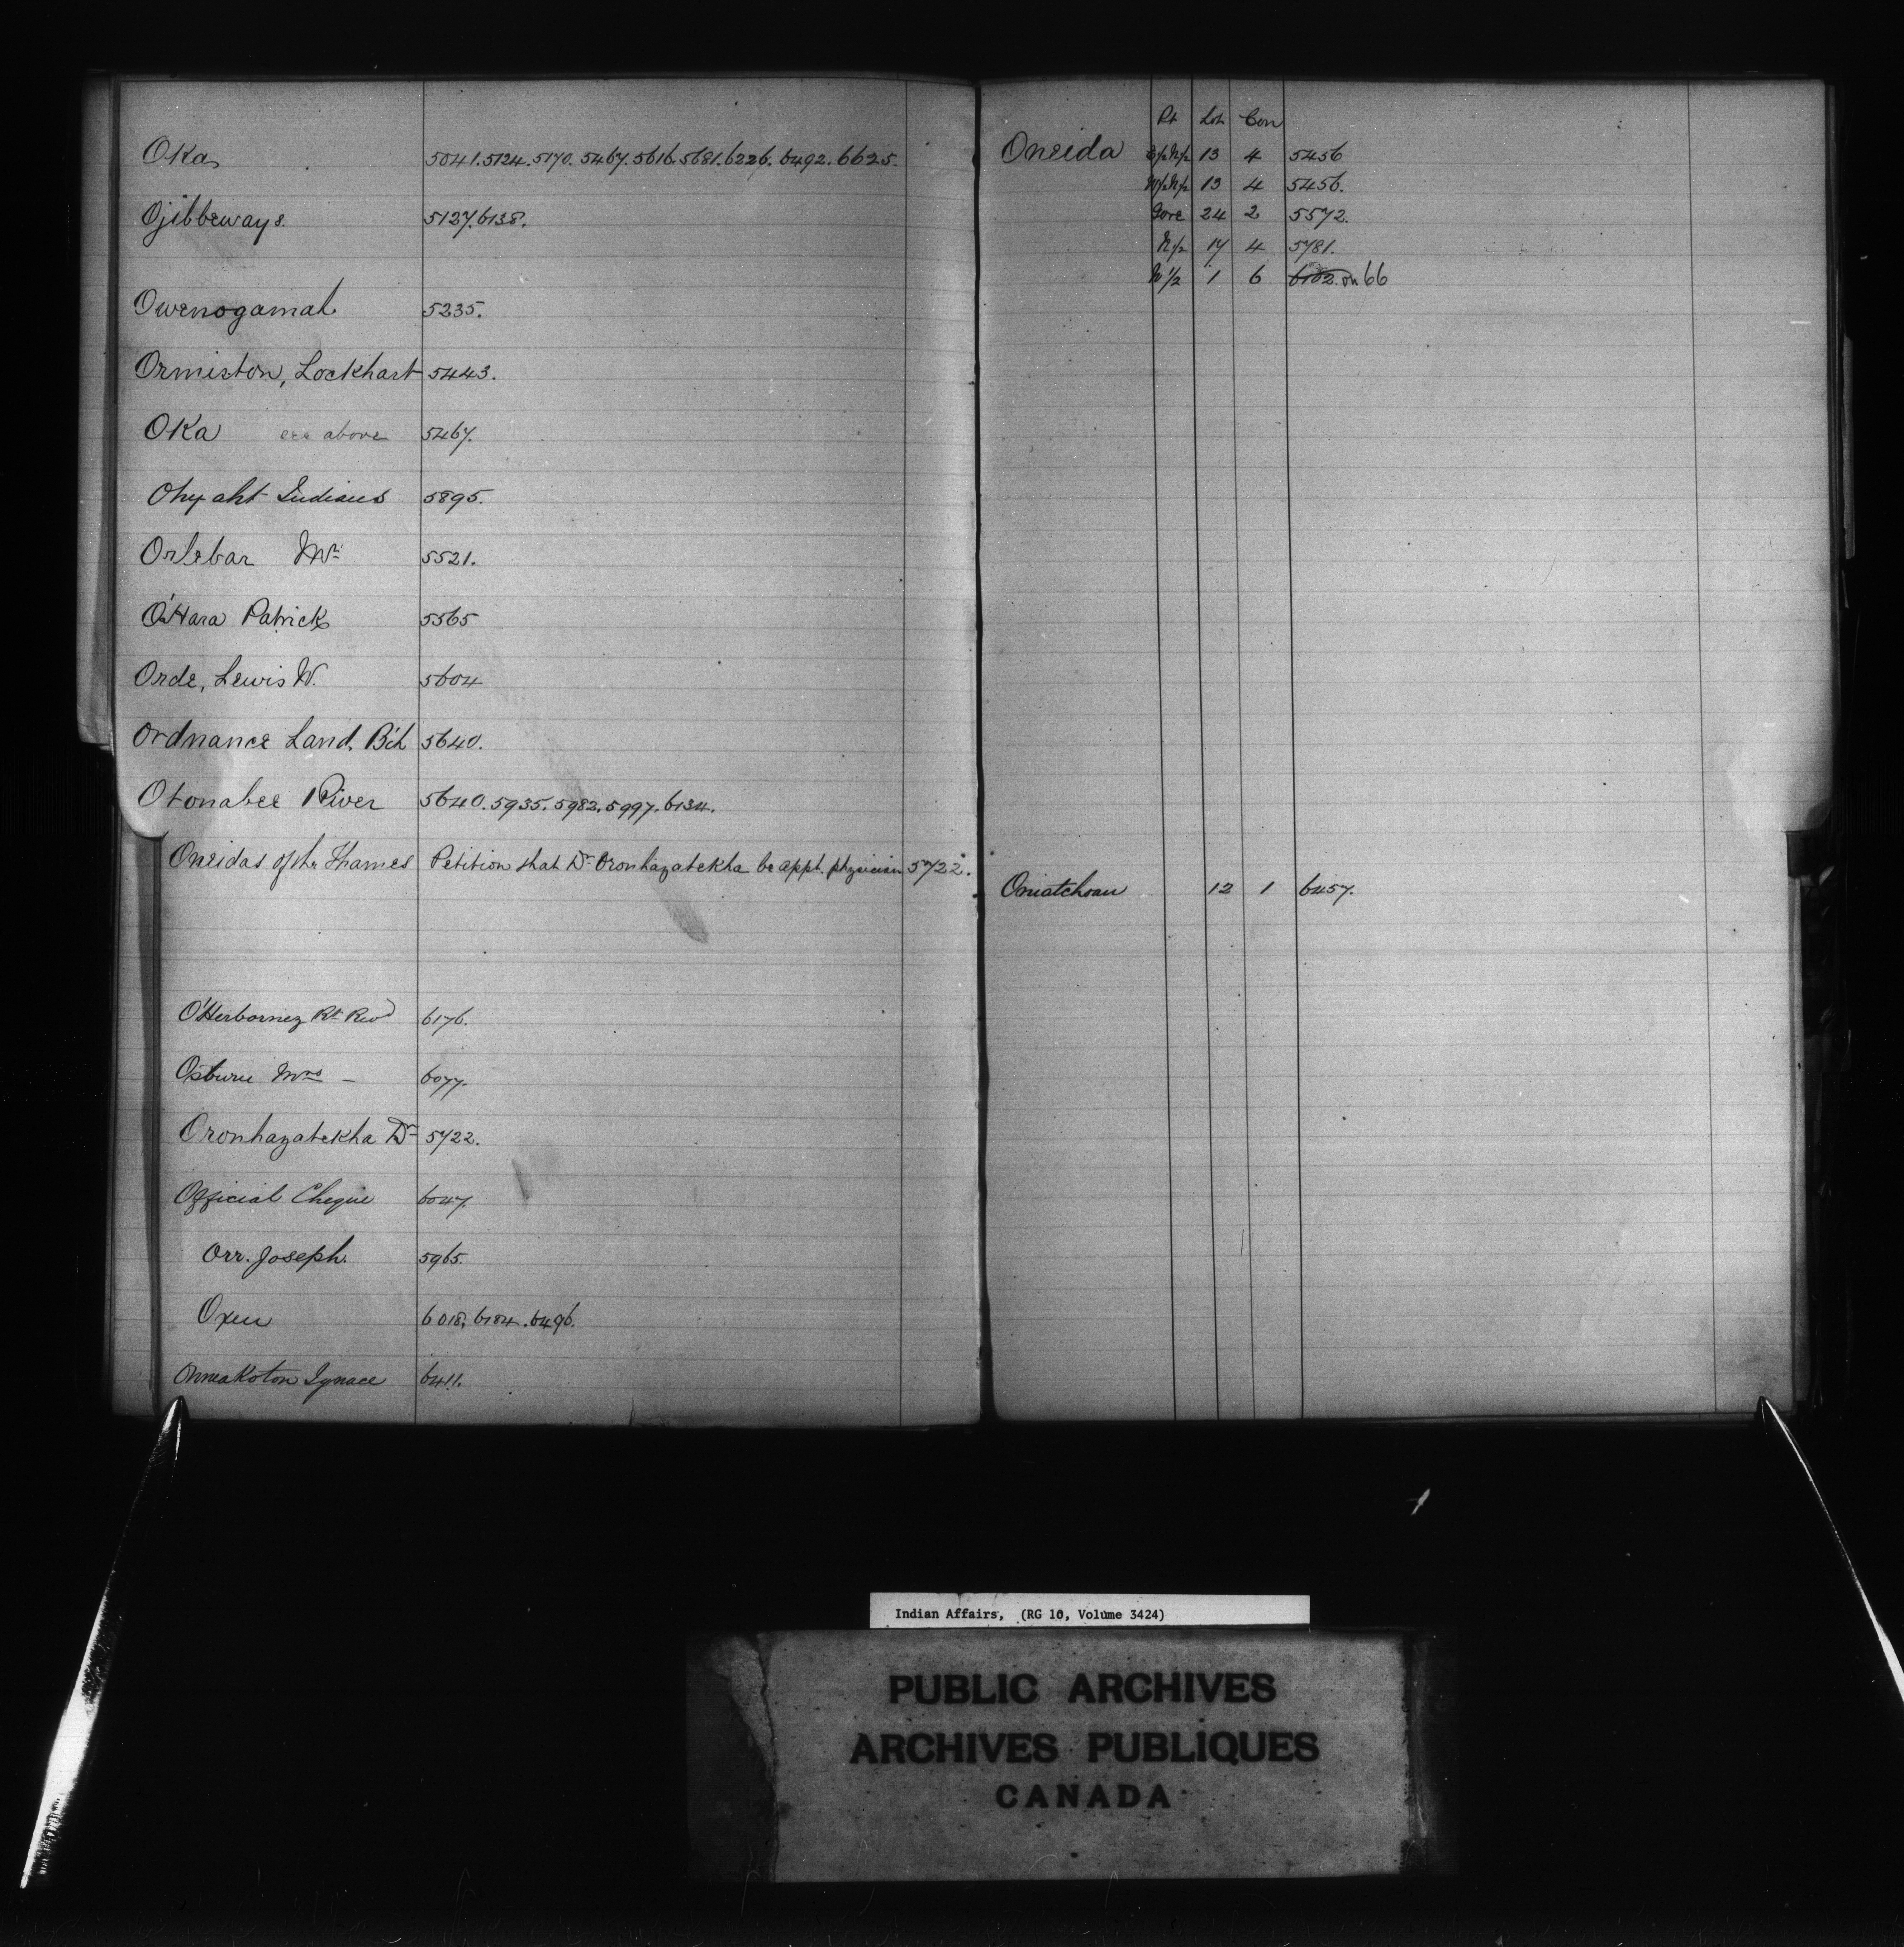 Oka 5041. 5124. 5170. 5467. 5616. 5681. 6226. 6492. 6625.
Ojibbeways. 5127. 6138.
Owenogamah. 5235.
Ormiston, Lockhart 5443.
Oka see above 5467.
Ohyaht Indians 5895.
Orlebar Mr. 5521.
O'Hara Patrick 5565
Orde, Lewis W. 5604
Ordnance Land, B'ch 5640.
Otonabee River 5640. 5935. 5982. 5997. 6134.
Oneidas of the Thames Petition that Dr. Oronhayatekha be appt. physician 5722.
O'Herbornez Rt. Revd 6176.
Osburn Mrs - 6077.
Oronhayatekha Dr 5722.
Official Cheque 6047.
Orr. Joseph. 5965.
Oxen 6018. 6184. 6496.
Onneakoton Ignace 6411.
Pt Lot Con
Oneida E½N½ 13 4 5456
W½N½ 13 4 5456.
Gore 24 2 5572.
N½ 17 4 5781.
N½ 1 6 6102. on 66
Omatchoan 12 1 6457.
Indian Affairs, (RG 10, Volume 3424)
PUBLIC ARCHIVES
ARCHIVES PUBLIQUES
CANADA